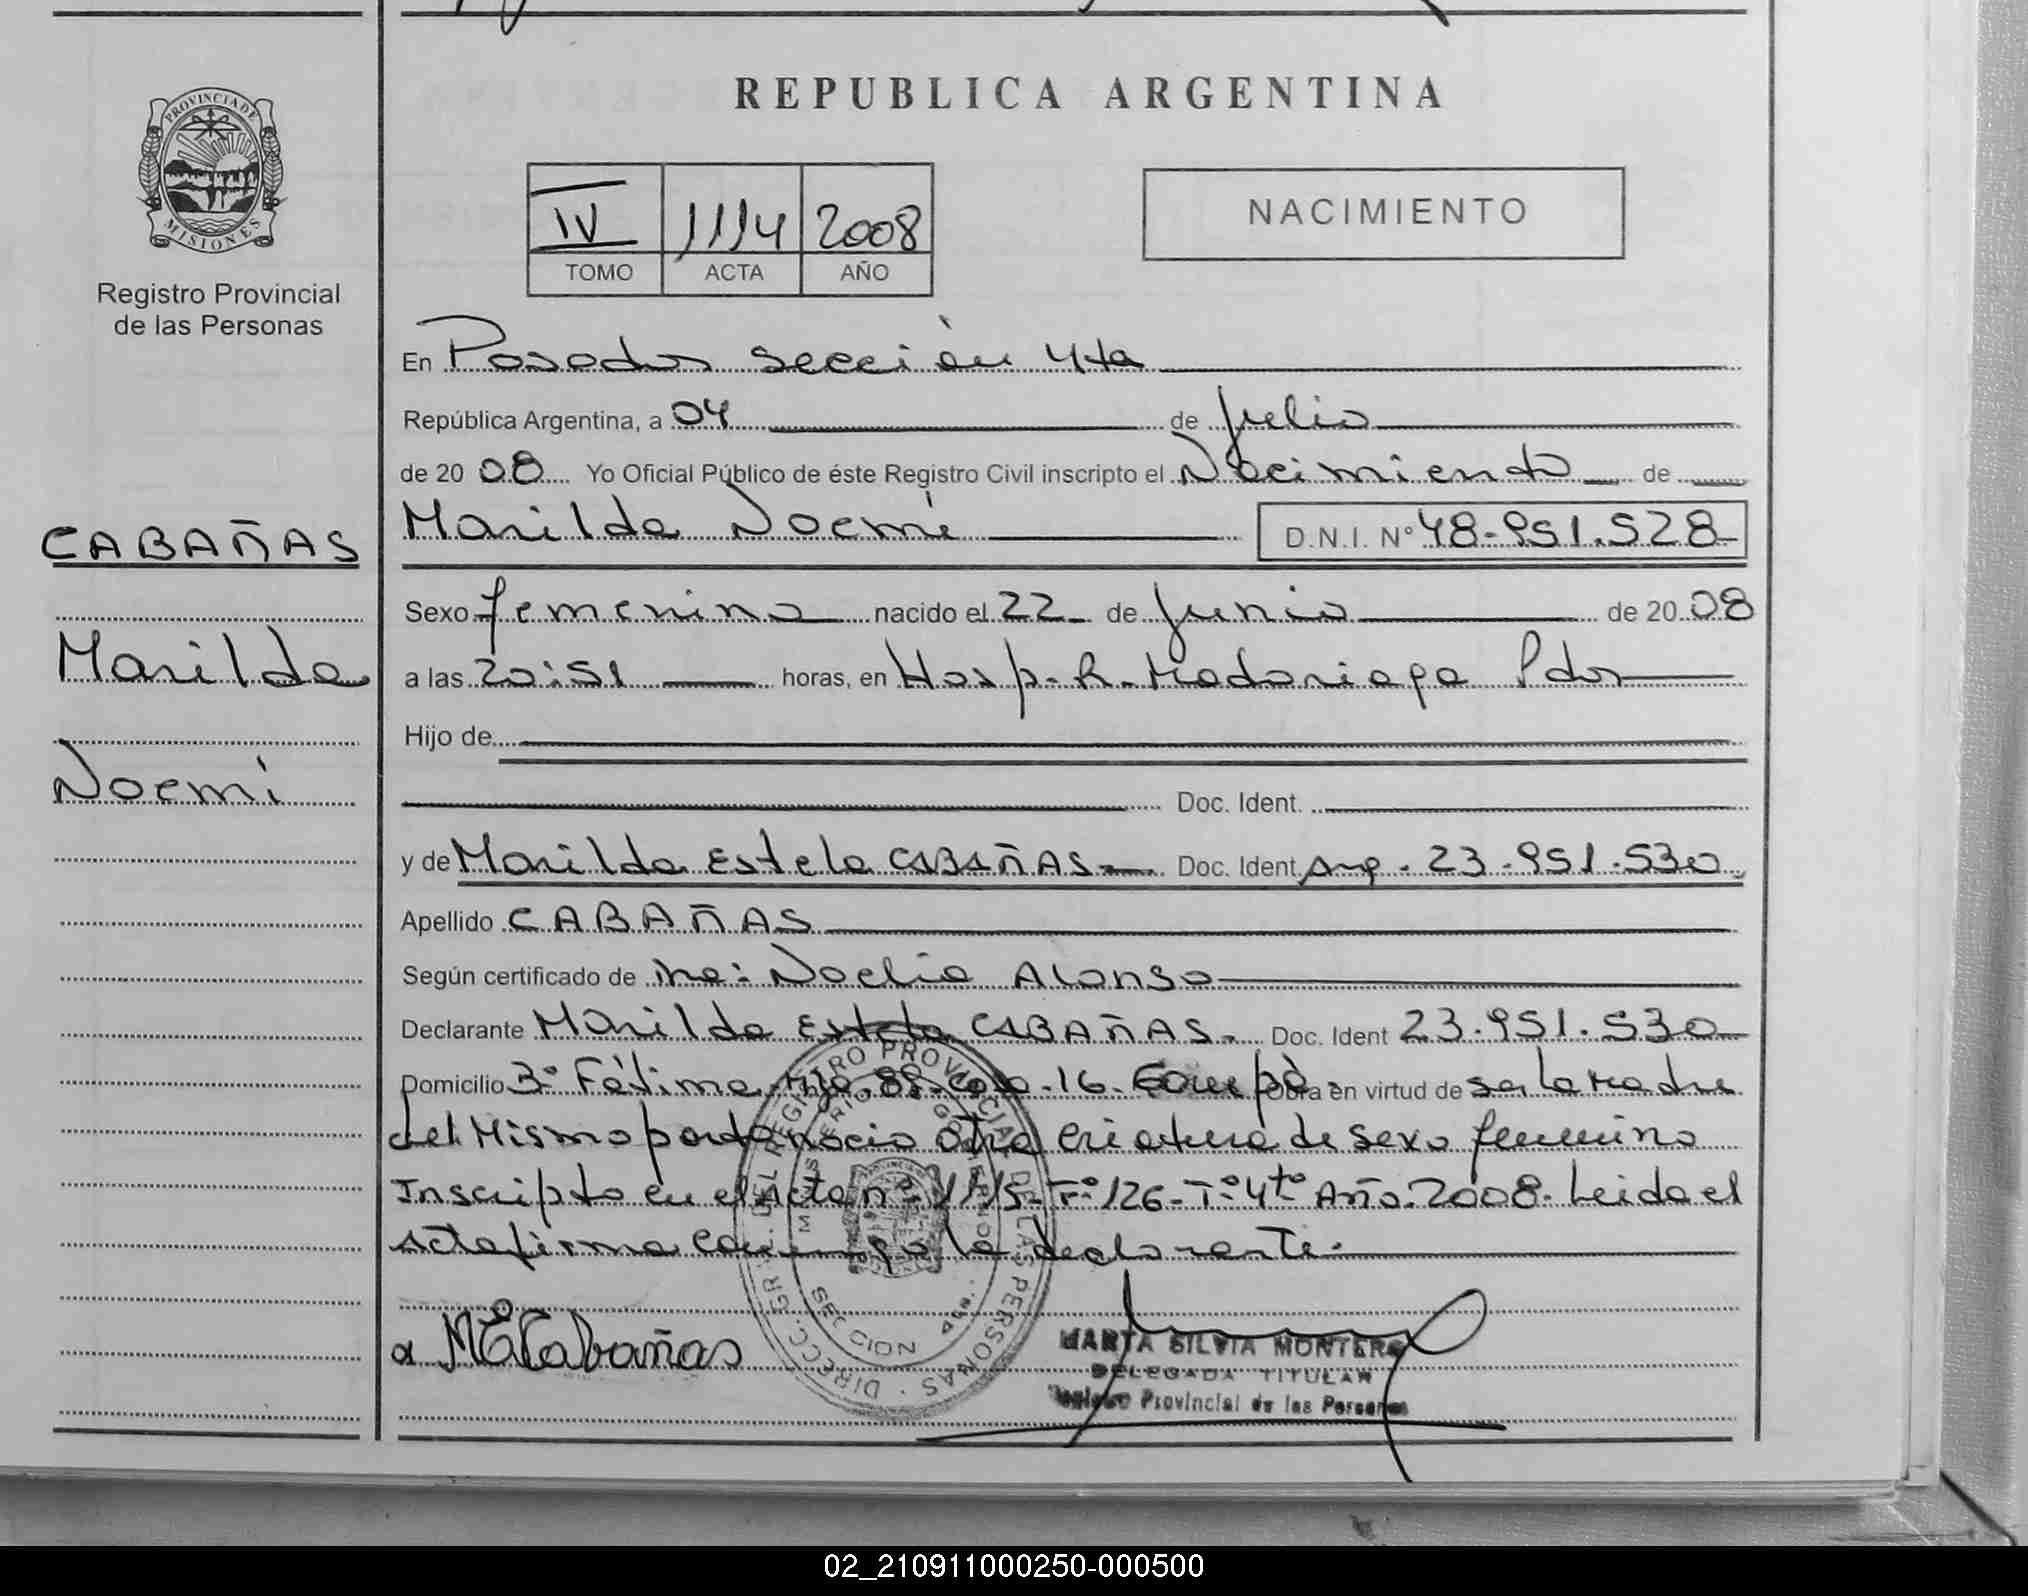 REPUBLICA ARGENTINA
PROVINCIA DE
MISIONES
Registro Provincial
de las Personas
IV 1114 2008
TOMO ACTA AÑO
NACIMIENTO
En Posadas sección 4ta
República Argentina, a 04 de julio
de 20 08 Yo Oficial Público de éste Registro Civil inscripto el Nacimiento de
Marilda Noemí D.N.I. Nº 48-951.528
CABAÑAS
Marilda
Noemí
Sexo femenino nacido el 22 de junio de 20 08
a las 20:51 horas, en Hosp. R. Madariaga Pdas
Hijo de
Doc. Ident.
y de Marilda Estela CABAÑAS Doc. Ident. Arg. 23.951.530
Apellido CABAÑAS
Según certificado de Noelia Alonso
Declarante Marilda Estela CABAÑAS. Doc. Ident 23.951.530
Domicilio 3º Fátima casa 16 Garupá. Obra en virtud de ser la madre
del Mismo parto nació otra criatura de sexo femenino
Inscripta en el Acta nº 1115-Fº 126-Tº 4to Año 2008. Leida el
Acta firma conmigo la declarante.
M E Cabañas
DIRECC. GR. DEL REGISTRO PROVINCIAL DE LAS PERSONAS
SECCION 4ta.
MARTA SILVIA MONTERO
DELEGADA TITULAR
Registro Provincial de las Personas
02_210911000250-000500